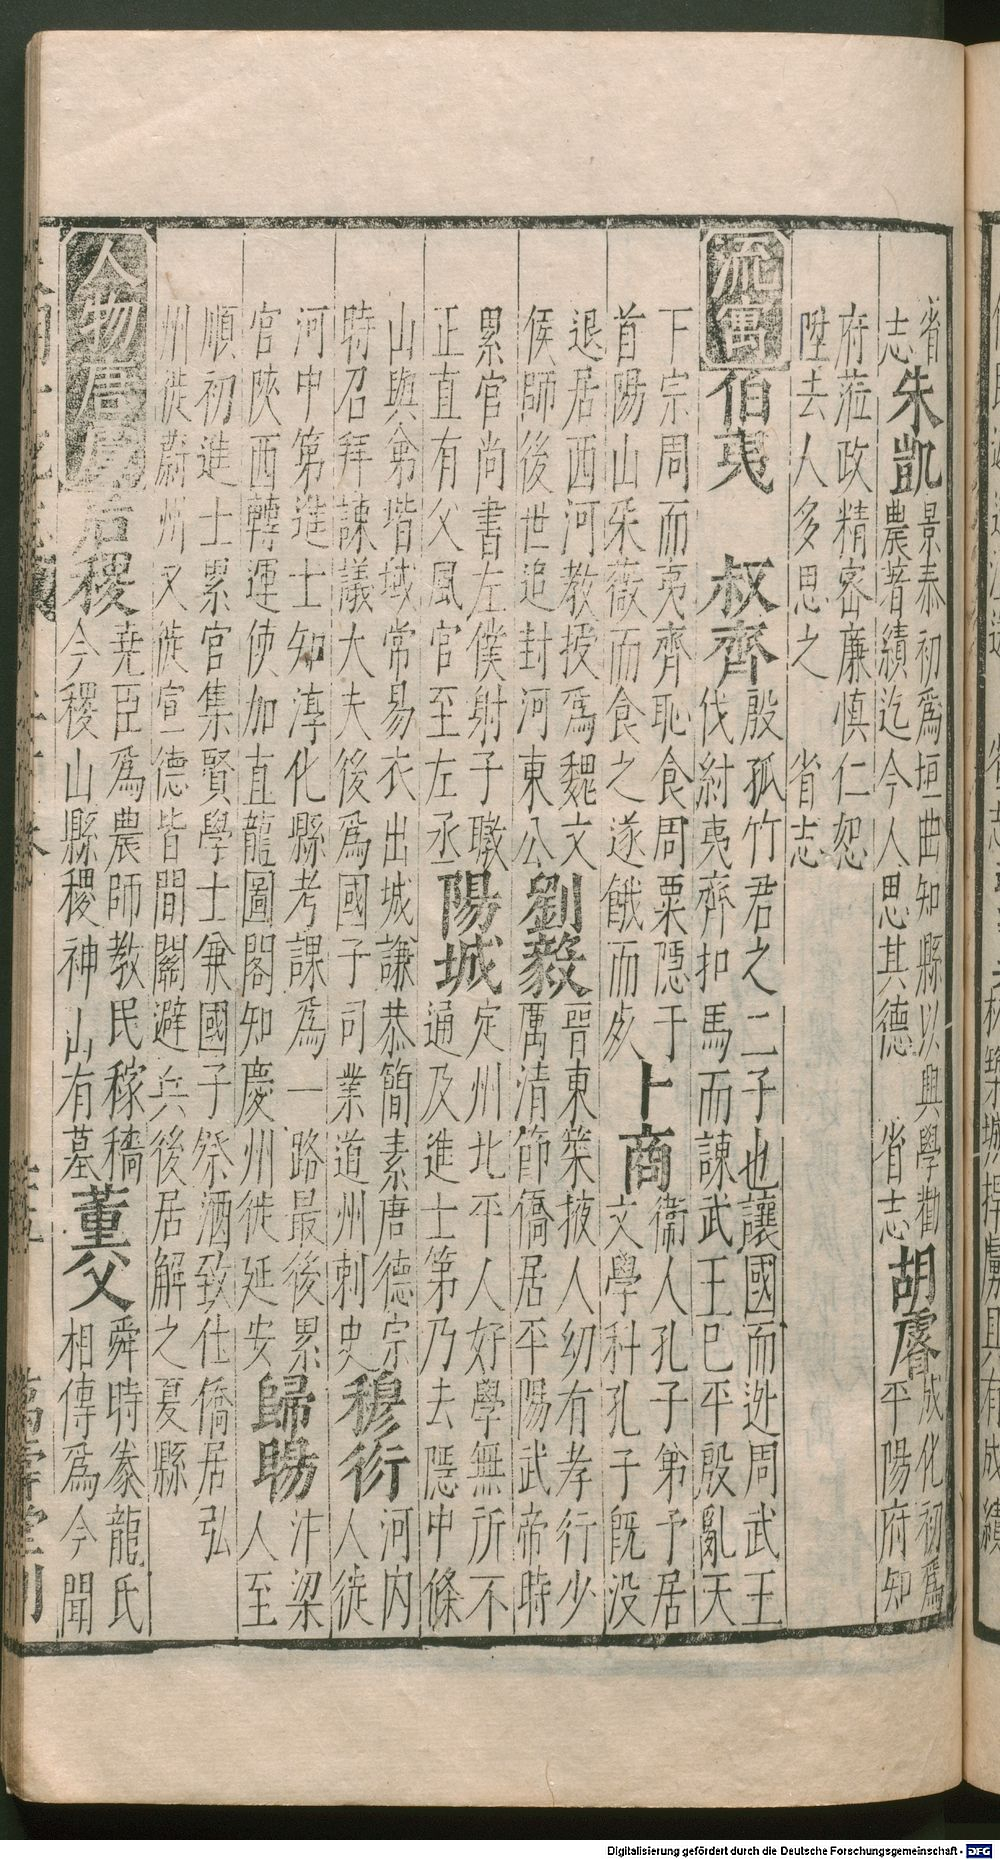 省
志朱凱景泰初爲垣曲知縣以興學勸
農著績迄今人思其德 省志胡睿成化初爲
平陽府知
府蒞政精密廉慎仁恕
陞去人多思之 省志
流寓伯夷 叔齊殷孤竹君之二子也讓國而逃周武王
伐紂夷齊扣馬而諫武王巳平殷亂天
下宗周而夷齊恥食周粟隱于
首陽山采薇而食之遂餓而死卜商衞人孔子弟子居
文學科孔子旣没
退居西河教授爲魏文
侯師後世追封河東公劉毅晉東萊掖人幼有孝行少
厲清節僑居平陽武帝時
累官尚書左僕射子暾
正直有父風官至左丞陽城定州北平人好學無所不
通及進士第乃去隱中條
山與弟堦域常易衣出城謙恭簡素唐德宗
時召拜諫議大夫後爲國子司業道州刺史穆衍河内
人徙
河中第進士知淳化縣考課爲一路最後累
官陝西轉運使加直龍圖閣知慶州徙延安歸暘汴梁
人至
順初進士累官集賢學士兼國子祭酒致仕僑居弘
州徙蔚州又徙宣德皆間關避兵後居解之夏縣
人物唐虞后稷堯臣爲農師教民稼穡
今稷山縣稷神山有墓董父舜時豢龍氏
相傳爲今聞
萬
堂刊